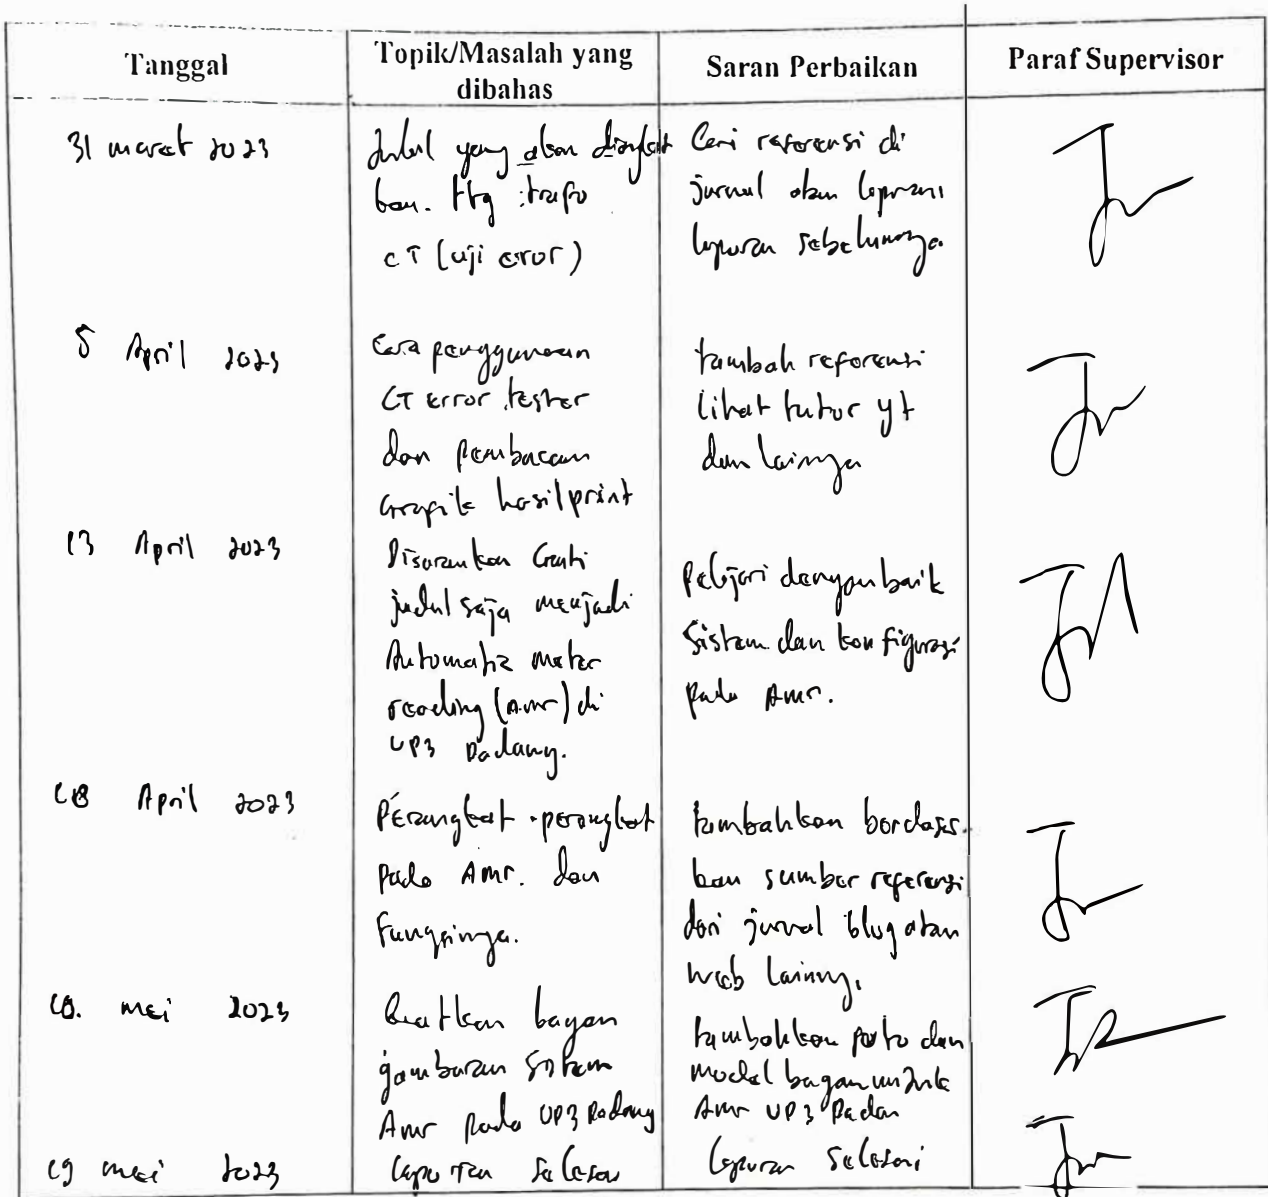 Tanggal
Topik/Masalah yang
dibahas
Saran Perbaikan
Paraf Supervisor
31 maret 2023
Judul yang akan diangkat
kan. ttg trafo
CT (uji error)
Cari referensi di
jurnal atau laporan
laporan sebelumnya.
5 April 2023
Cara penggunaan
CT error tester
dan pembacaan
Grafik hasil print
tambah referensi
lihat tutor yt
dan lainnya
13 April 2023
Disarankan Ganti
judul saja menjadi
Automatic meter
reading (Amr) di
UP3 Padang.
pelajari dengan baik
Sistem dan konfigurasi
pada Amr.
18 April 2023
Perangkat-perangkat
pada Amr. dan
Fungsinya.
tambahkan berdasar
kan sumber referensi
dari jurnal blog atau
web lainny.
10. mei 2023
Buatkan bagan
gambaran Sistem
Amr pada UP3 Padang
tambahkan poto dan
model bagan untuk
Amr UP3 Padan
19 mei 2023
laporan selesai
laporan selesai